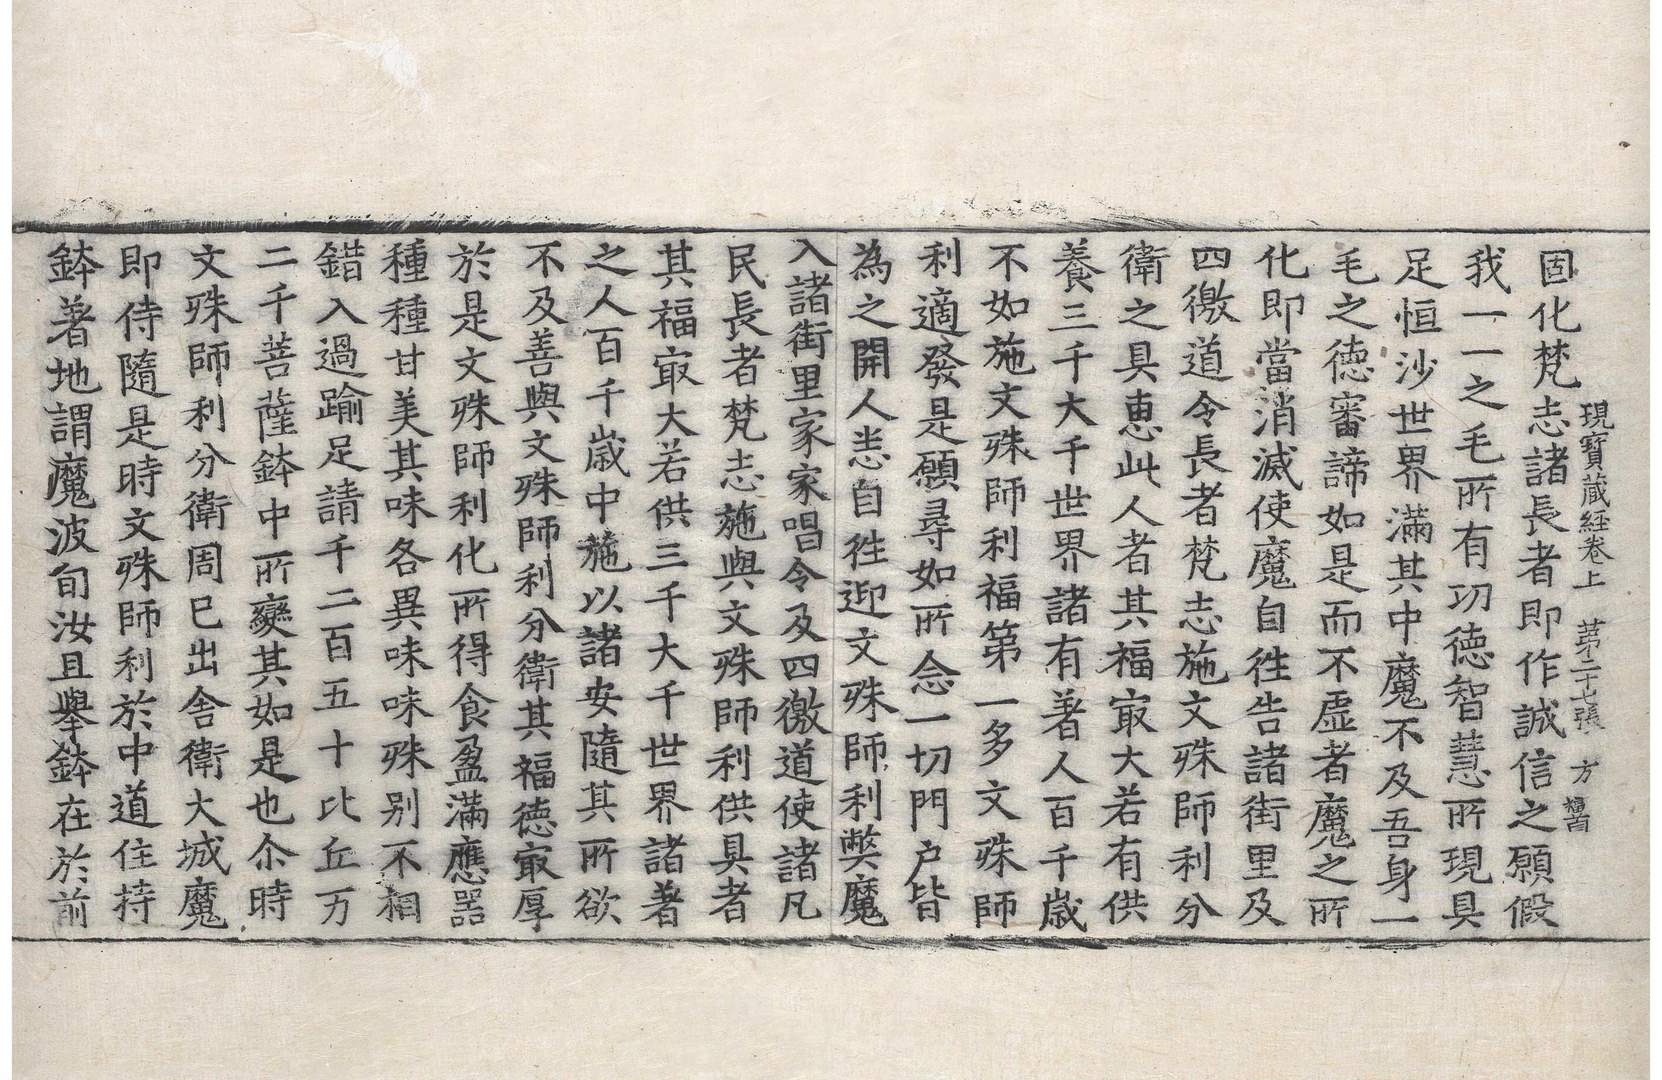 現寶藏經卷上　第二十七張　方
固化梵志諸長者即作誠信之願假
我一一之毛所有功德智慧所現具
足恒沙世界滿其中魔不及吾身一
毛之德審諦如是而不虛者魔之所
化即當消滅使魔自徃告諸街里及
四徼道令長者梵志施文殊師利分
衛之具恵此人者其福寂大若有供
養三千大千世界諸有著人百千歲
不如施文殊師利福第一多文殊師
利適發是願尋如所念一切門户皆
為之開人恙自徃迎文殊師利獘魔
入諸街里家家唱令及四徼道使諸凡
民長者梵志施與文殊師利供具者
其福寂大若供三千大千世界諸著
之人百千歲中施以諸安隨其所欲
不及善與文殊師利分衛其福德寂厚
於是文殊師利化所得食盈滿應器
種種甘美其味各異味味殊別不相
錯入過踰足請千二百五十比丘万
二千菩薩鉢中所變其如是也尒時
文殊師利分衛周已出舍衛大城魔
即侍隨是時文殊師利於中道住持
鉢著地謂魔波旬汝且擧鉢在於前